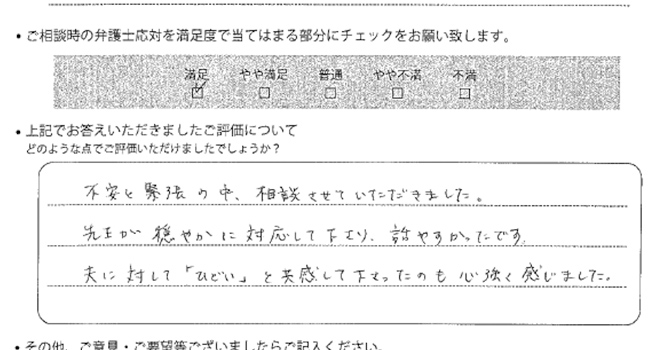 • ご相談時の弁護士応対を満足度で当てはまる部分にチェックをお願い致します。
満足 やや満足 普通 やや不満 不満
☑ □ □ □ □
• 上記でお答えいただきましたご評価について
どのような点でご評価いただけましたでしょうか？
不安と緊張の中、相談させていただきました。
先生が穏やかに対応して下さり、話やすかったです。
夫に対して「ひどい」と共感して下さったのも心強く感じました。
• その他、ご意見・ご要望等ございましたらご記入ください。